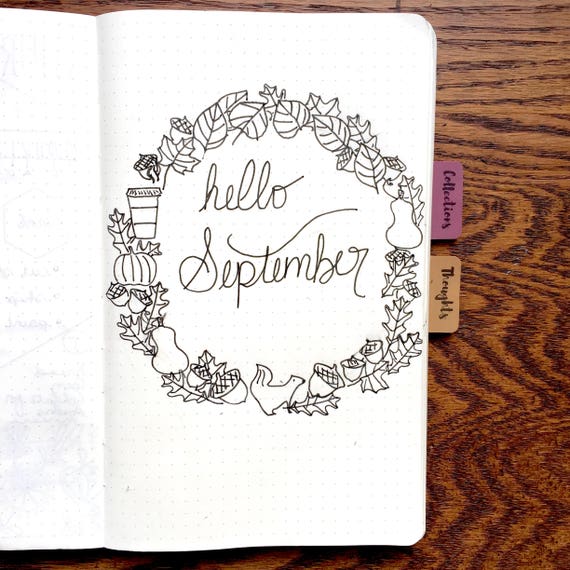 hello
September
Collections
Thoughts